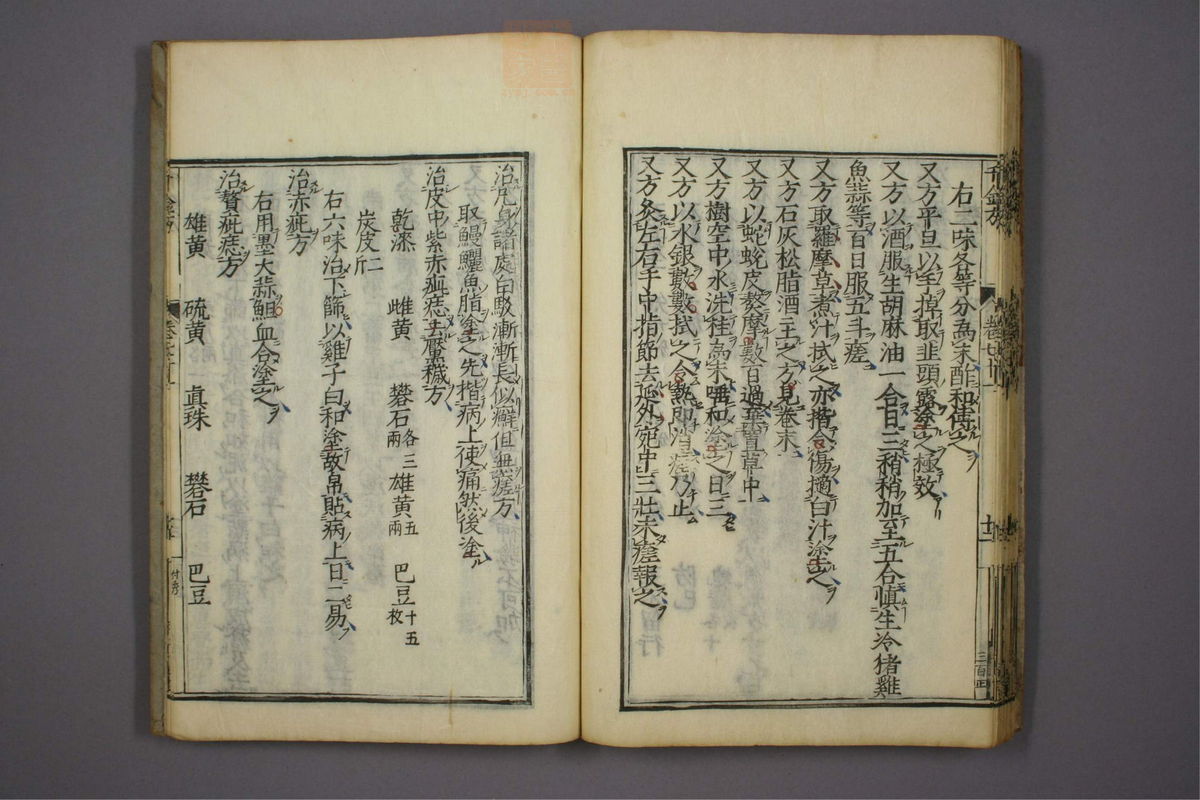 右二味各等分為末酢和傅之
又方平旦以手掉取韭頭露塗之極效
又方以酒服生胡麻油一合日三稍稍加至五合慎生冷猪雞
魚蒜等百日服五斗瘥
又方取羅摩草煮汁拭之亦揩令傷擿白汁塗之
又方石灰松脂酒主之方見卷末
又方以蛇蛻皮熬摩數百過棄置草中
又方樹空中水洗桂為末唾和塗之日三
又方以水銀數數拭之令熱即消瘥乃止
又方灸左右手中指節去延外宛中三壯未瘥報之
治凡身諸處白駁漸漸長似癬但無瘡方
取鰻鱺魚脂塗之先揩病上使痛然後塗
治皮中紫赤疵痣去黶穢方
乾漆 雌黃 礬石各三兩 雄黃五兩 巴豆十五枚
炭皮一斤
右六味治下篩以雞子白和塗故帛貼病上日二易
治赤疵方
右用墨大蒜䱉血合塗之
治贅疵痣方
雄黃 硫黃 真珠 礬石 巴豆